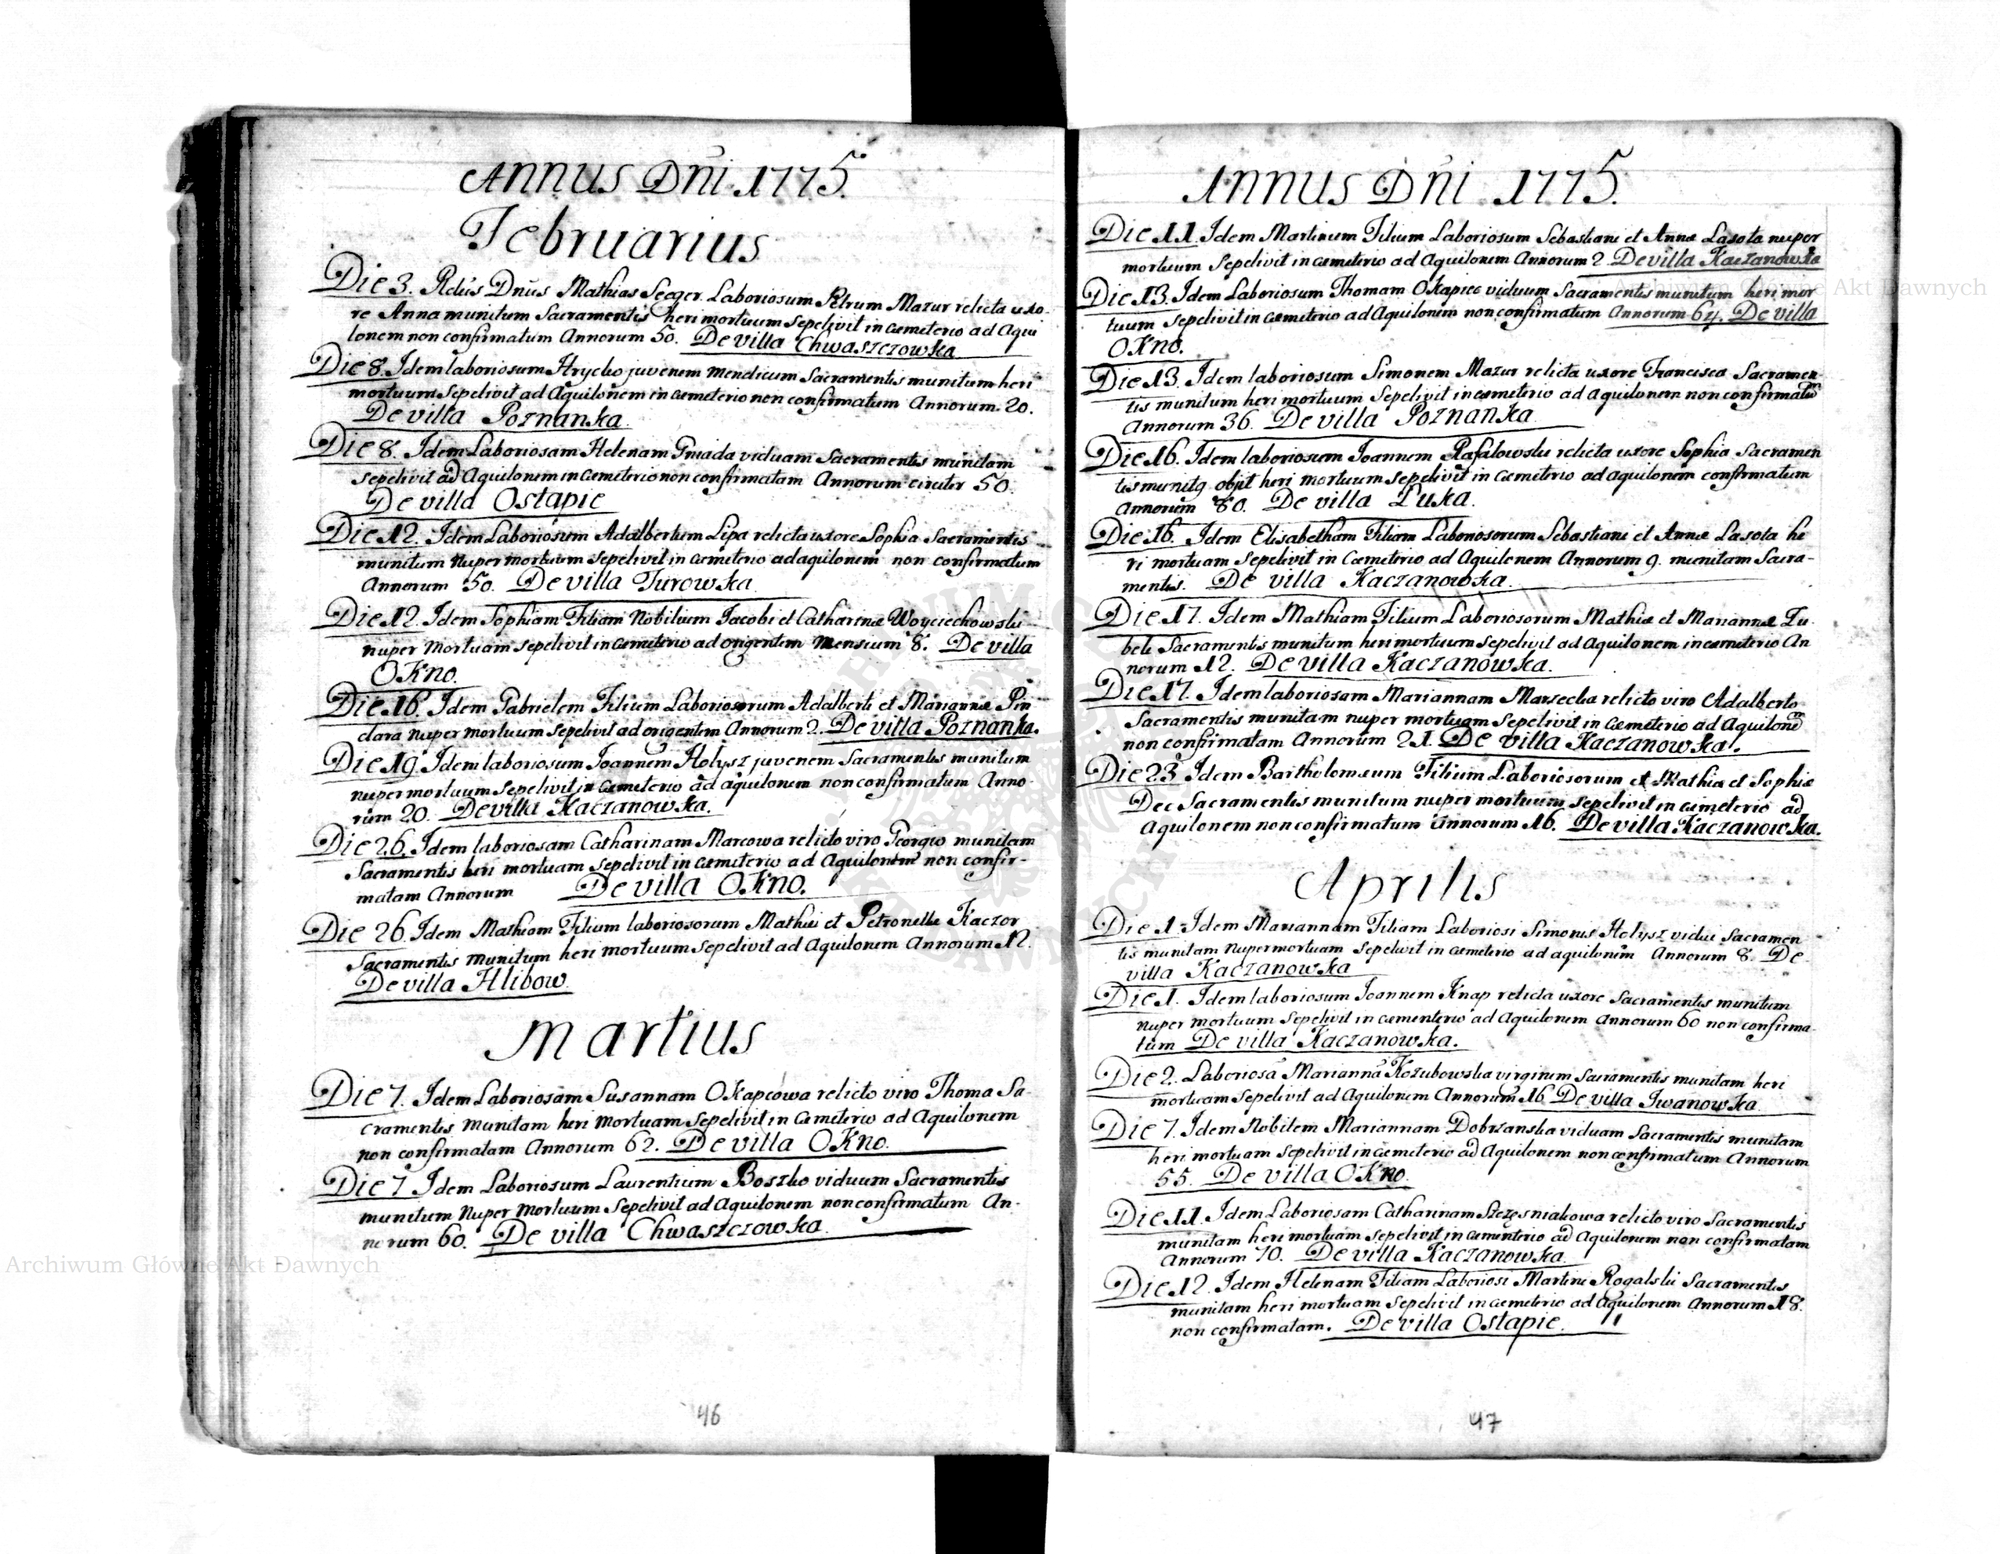 Annus Dñi 1775.
Februarius
Die 3. Rdus Dnus Mathias Seeger Laboriosum Petrum Mazur relicta uxo-
re Anna munitum Sacramentis heri mortuum sepelivit in cæmeterio ad Aqui
lonem non confirmatum Annorum 50. De villa Chwaszczowka
Die 8. Idem laboriosum Hrycko juvenem mendicum Sacramentis munitum heri
mortuum sepelivit ad Aquilonem in cæmeterio non confirmatum Annorum 20.
De villa Poznanka
Die 8. Idem Laboriosam Helenam Gniada viduam Sacramentis munitam
sepelivit ad Aquilonem in cæmeterio non confirmatam Annorum circiter 50.
De villa Ostapie
Die 12. Idem Laboriosum Adalbertum Lipa relicta uxore Sophia Sacramentis
munitum nuper mortuum sepelivit in cæmeterio ad aquilonem non confirmatum
Annorum 50. De villa Turowka
Die 12. Idem Sophiam Filiam Nobilium Jacobi et Catharinæ Woyciechowski
nuper mortuam sepelivit in cæmeterio ad origentem Mensium 8. De villa
Okno.
Die 16. Idem Gabrielem Filium Laboriosorum Adalberti et Mariannæ Pin
dara nuper mortuum sepelivit ad origentem Annorum 2. De villa Poznanka.
Die 19. Idem laboriosum Joannem Holysz juvenem Sacramentis munitum
nuper mortuum sepelivit in cæmeterio ad aquilonem non confirmatum Anno-
rum 20. De villa Kaczanowka.
Die 26. Idem laboriosam Catharinam Marcowa relicto viro Georgio munitam
Sacramentis heri mortuam sepelivit in cæmeterio ad Aquilonem non confir-
matam Annorum De villa Okno.
Die 26. Idem Mathiam Filium laboriosorum Mathiæ et Petronellæ Kaczor
Sacramentis munitum heri mortuum sepelivit ad Aquilonem Annorum 12.
De villa Hlibow.
Martius
Die 7. Idem Laboriosam Susannam Okapcowa relicto viro Thoma Sa-
cramentis munitam heri mortuam sepelivit in cæmeterio ad Aquilonem
non confirmatam Annorum 62. De villa Okno.
Die 7 Idem Laboriosum Laurentium Boszko viduum Sacramentis
munitum nuper mortuum sepelivit ad Aquilonem non confirmatum An-
norum 60. De villa Chwaszczowka
46
Annus Dñi 1775.
Die 11. Idem Martinum Filium Laboriosum Sebastiani et Annæ Lasota nuper
mortuum sepelivit in cæmeterio ad Aquilonem Annorum 2 De villa Kaczanowka
Die 13. Idem Laboriosum Thomam Okapiec viduum Sacramentis munitum heri mor
tuum sepelivit in cæmeterio ad Aquilonem non confirmatum Annorum 64. De villa
Okno.
Die 13. Idem laboriosum Simonem Mazur relicta uxore Francisca Sacramen-
tis munitum heri mortuum sepelivit in cæmeterio ad aquilonem non confirmatum
Annorum 36. De villa Poznanka
Die 16. Idem laboriosum Joannem Rafalowski relicta uxore Sophia Sacramen
tis munitq obijt heri mortuum sepelivit in cæmeterio ad aquilonem confirmatum
Annorum 80. De villa Luka.
Die 16. Idem Elisabetham Filiam Laboriosorum Sebastiani et Annæ Lasota he
ri mortuam sepelivit in Cæmeterio ad Aquilonem Annorum 9. munitam Sacra-
mentis. De villa Kaczanowka.
Die 17. Idem Mathiam Filium Laboriosorum Mathiæ et Mariannæ Zu
bek Sacramentis munitum heri mortuum sepelivit ad Aquilonem in cæmeterio An
norum 12. De villa Kaczanowka.
Die 17. Idem laboriosam Mariannam Marsecka relicto viro Adalberto
Sacramentis munitam nuper mortuam sepelivit in cæmeterio ad Aquilonem
non confirmatam Annorum 21. De villa Kaczanowka.
Die 23 Idem Bartholomæum Filium Laboriosorum et Mathiæ et Sophiæ
Dec Sacramentis munitum nuper mortuum sepelivit in cæmeterio ad
Aquilonem non confirmatum Annorum 16. De villa Kaczanowka.
Aprilis
Die 1. Idem Mariannam Filiam Laboriosi Simonis Holysz vidui Sacramen
tis munitam nuper mortuam sepelivit in cæmeterio ad aquilonem Annorum 8. De
villa Kaczanowka
Die 1. Idem laboriosum Joannem Knap relicta uxore Sacramentis munitum
nuper mortuum sepelivit in cæmenterio ad Aquilonem Annorum 60 non confirma-
tum De villa Kaczanowka.
Die 2. Laboriosã Mariannã Kozubowska virginem Sacramentis munitam heri
mortuam sepelivit ad Aquilonem Annorum 16 De villa Iwanowka
Die 7. Idem Nobilem Mariannam Dobrzanska viduam Sacramentis munitam
heri mortuam sepelivit in cæmeterio ad Aquilonem non confirmatum Annorum
55. De villa Okno.
Die 11. Idem Laboriosam Catharinam Szczęsniakowa relicto viro Sacramentis
munitam heri mortuam sepelivit in cæmenterio ad Aquilonem non confirmatam
Annorum 70. De villa Kaczanowka.
Die 12. Idem Helenam Filiam Laboriosi Martini Rogalski Sacramentis
munitam heri mortuam sepelivit in cæmeterio ad Aquilonem Annorum 18.
non confirmatam. De villa Ostapie.
47
Archiwum Główne Akt Dawnych
Archiwum Główne Akt Dawnych